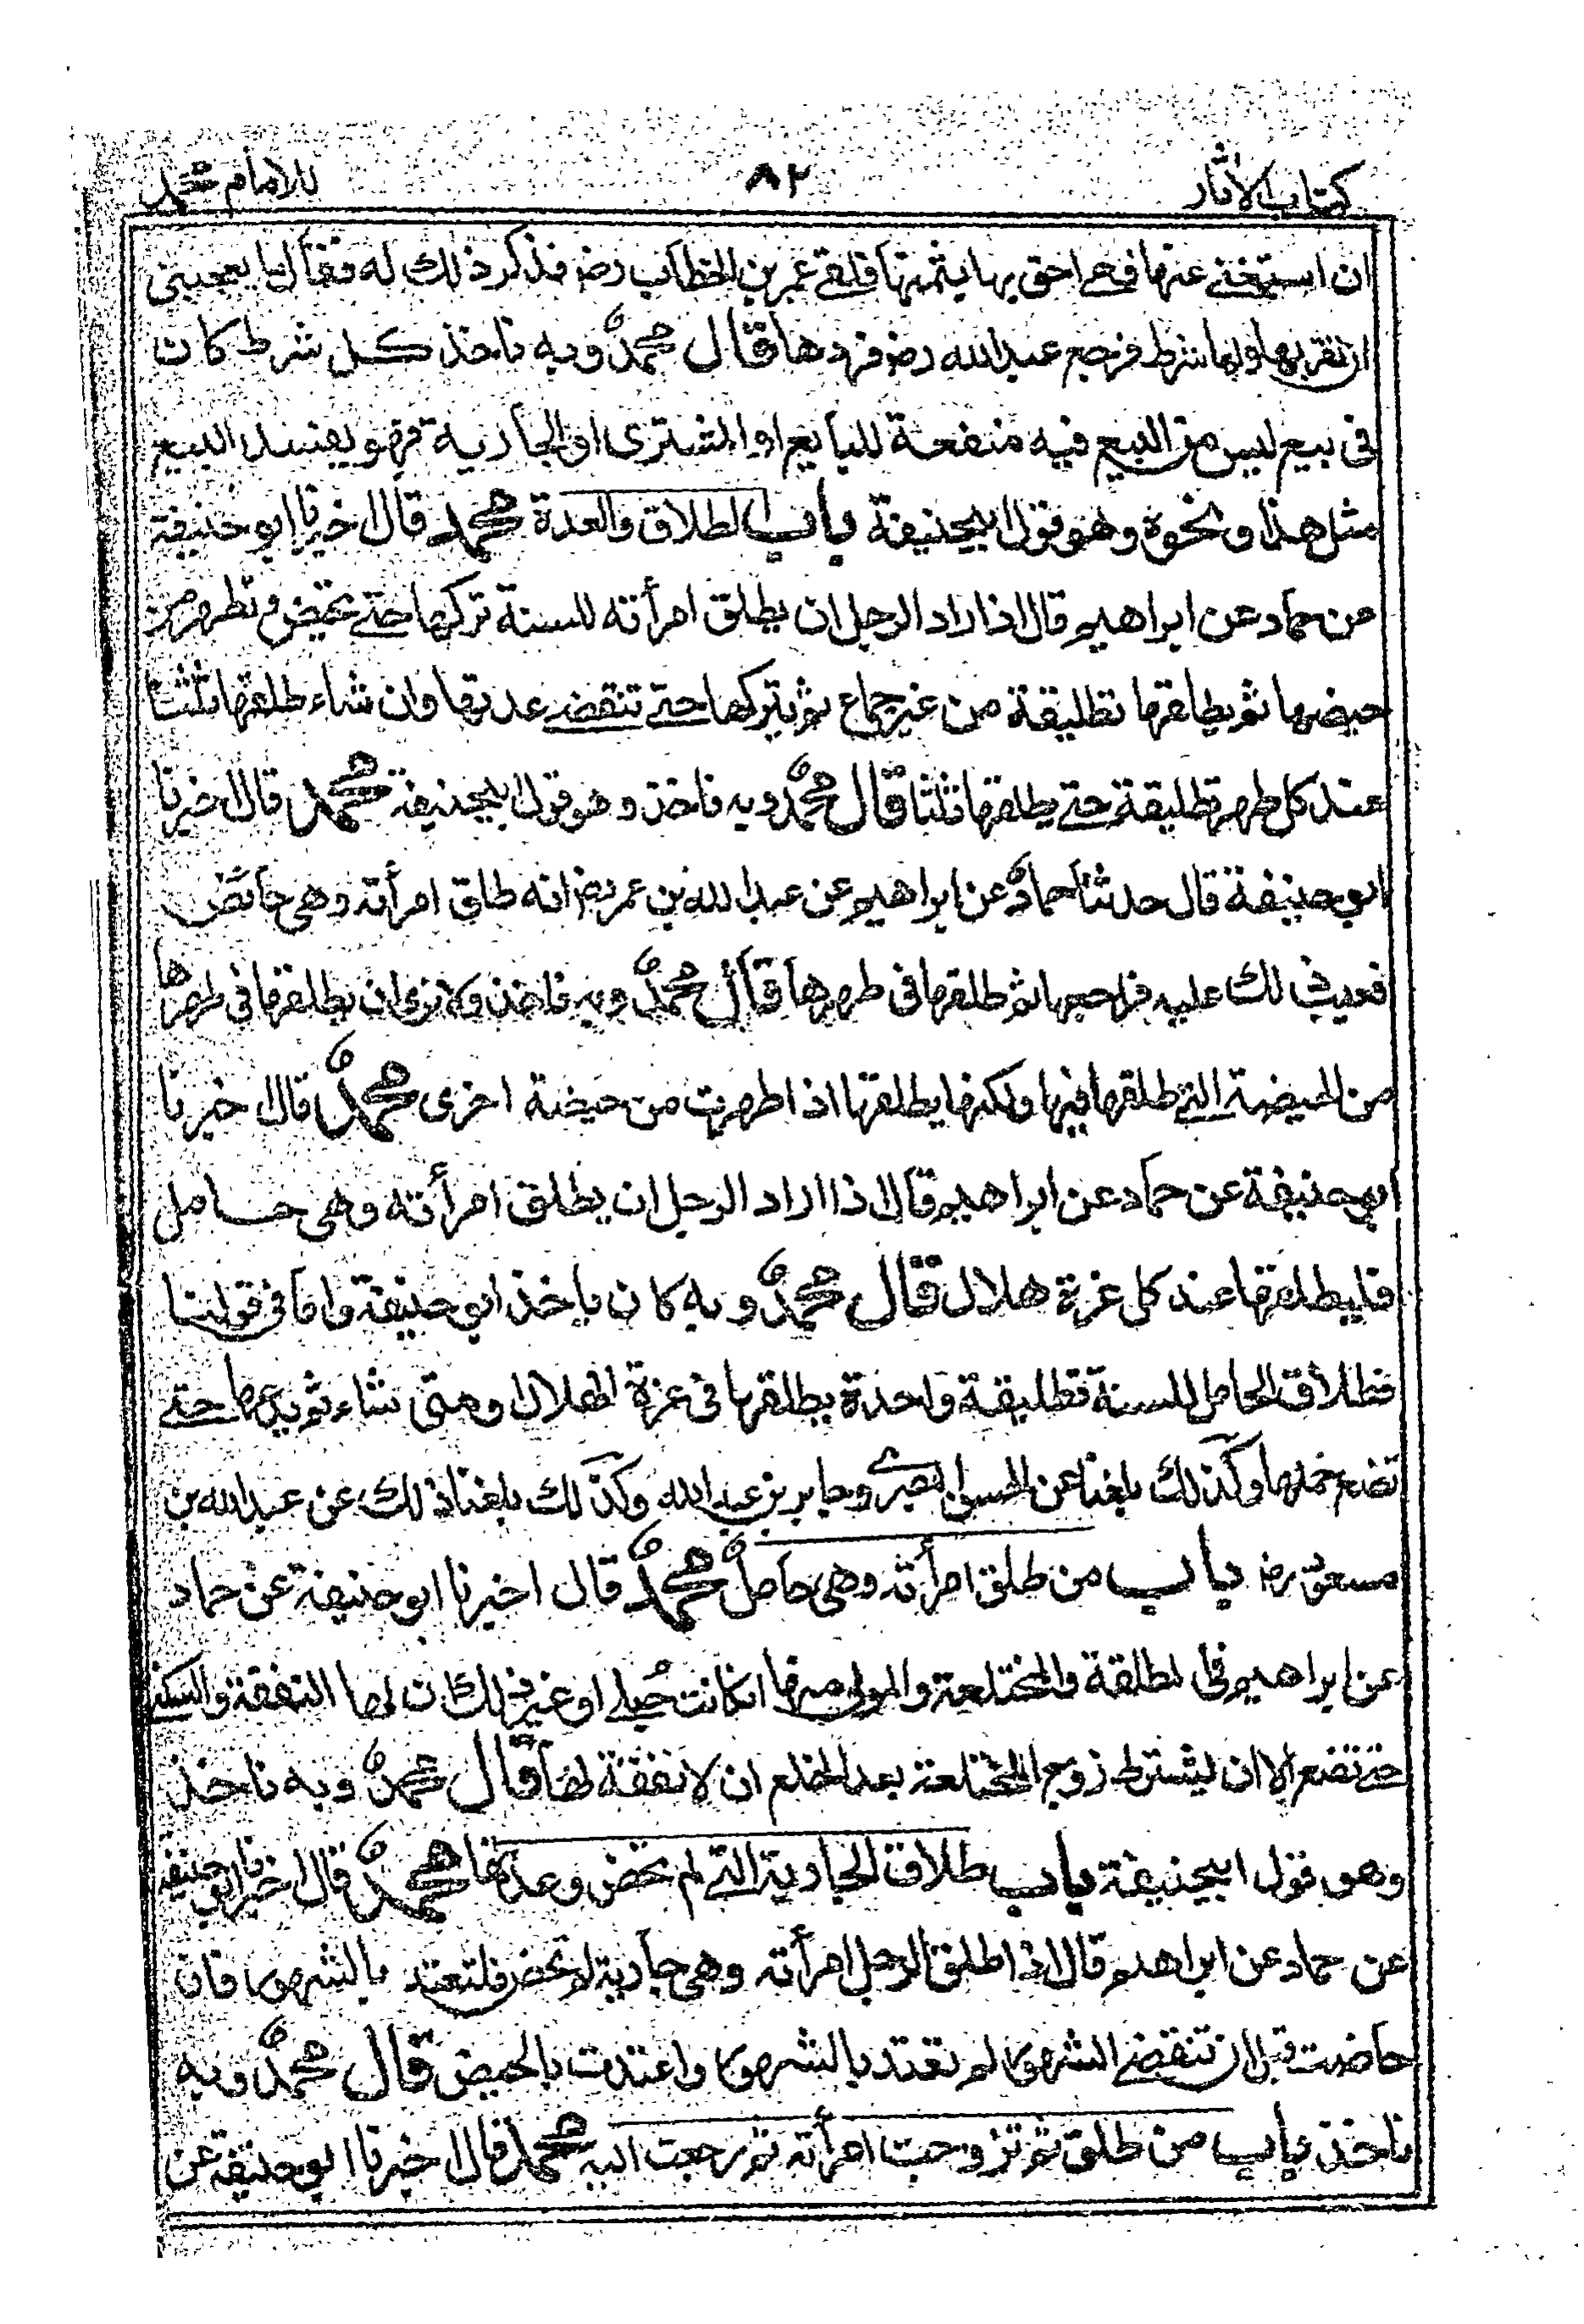 كتاب الاثار ٨٢ للامام محمد
ان استغنى عنها فهى احق بها بثمنها فلقى عمر بن الخطاب رض فذكر ذلك له فقال ما يعجبنى
ان تقربها ولها شرط فرجع عبد الله رض فردها قال محمد وبه ناخذ كل شرط كان
فى بيع ليس من البيع فيه منفعة للبايع او المشترى او الجارية فهو يفسد البيع
مثل هذا ونحوه وهو قول ابيحنيفة باب الطلاق والعدة محمد قال اخبرنا ابو حنيفة
عن حماد عن ابراهيم قال اذا اراد الرجل ان يطلق امرأته للسنة تركها حتى تحيض وتطهر من
حيضها ثم يطلقها تطليقة من غير جماع ثم يتركها حتى تنقضى عدتها وان شاء طلقها ثلثا
عند كل طهر تطليقة حتى يطلقها ثلثا قال محمد وبه ناخذ وهو قول ابيحنيفة محمد قال اخبرنا
ابو حنيفة قال حدثنا حماد عن ابراهيم عن عبد الله بن عمر رض انه طلق امرأته وهى حائض
فعيب ذلك عليه فراجعها ثم طلقها فى طهرها قال محمد وبه ناخذ ولا نرى ان يطلقها فى طهرها
من الحيضة التى طلقها فيها ولكنها يطلقها اذا طهرت من حيضة اخرى محمد قال اخبرنا
ابو حنيفة عن حماد عن ابراهيم قال اذا اراد الرجل ان يطلق امرأته وهى حامل
فليطلقها عند كل غرة هلال قال محمد وبه كان ياخذ ابو حنيفة واما فى قولنا
فطلاق الحامل للسنة تطليقة واحدة يطلقها فى غرة الهلال او متى شاء ثم يدعها حتى
تضع حملها وكذلك بلغنا عن الحسن البصرى وجابر بن عبد الله وكذلك بلغنا ذلك عن عبد الله بن
مسعود رض باب من طلق امرأته وهى حامل محمد قال اخبرنا ابو حنيفة عن حماد
عن ابراهيم فى المطلقة والمختلعة والمولى منها انكانت حبلى او غير ذلك كان لها النفقة والسكنى
حتى تضع الا ان يشترط زوج المختلعة بعد الخلع ان لا نفقة لها قال محمد وبه ناخذ
وهو قول ابيحنيفة باب طلاق الجارية التى لم تحض وعدتها محمد قال اخبرنا ابو حنيفة
عن حماد عن ابراهيم قال اذا طلق الرجل امرأته وهى جارية لا تحض فلتعتد بالشهور فان
حاضت قبل ان تنقضى الشهور لم تعتد بالشهور واعتدت بالحيض قال محمد وبه
ناخذ باب من طلق ثم تزوجت امرأته ثم رجعت اليه محمد قال اخبرنا ابو حنيفة عن